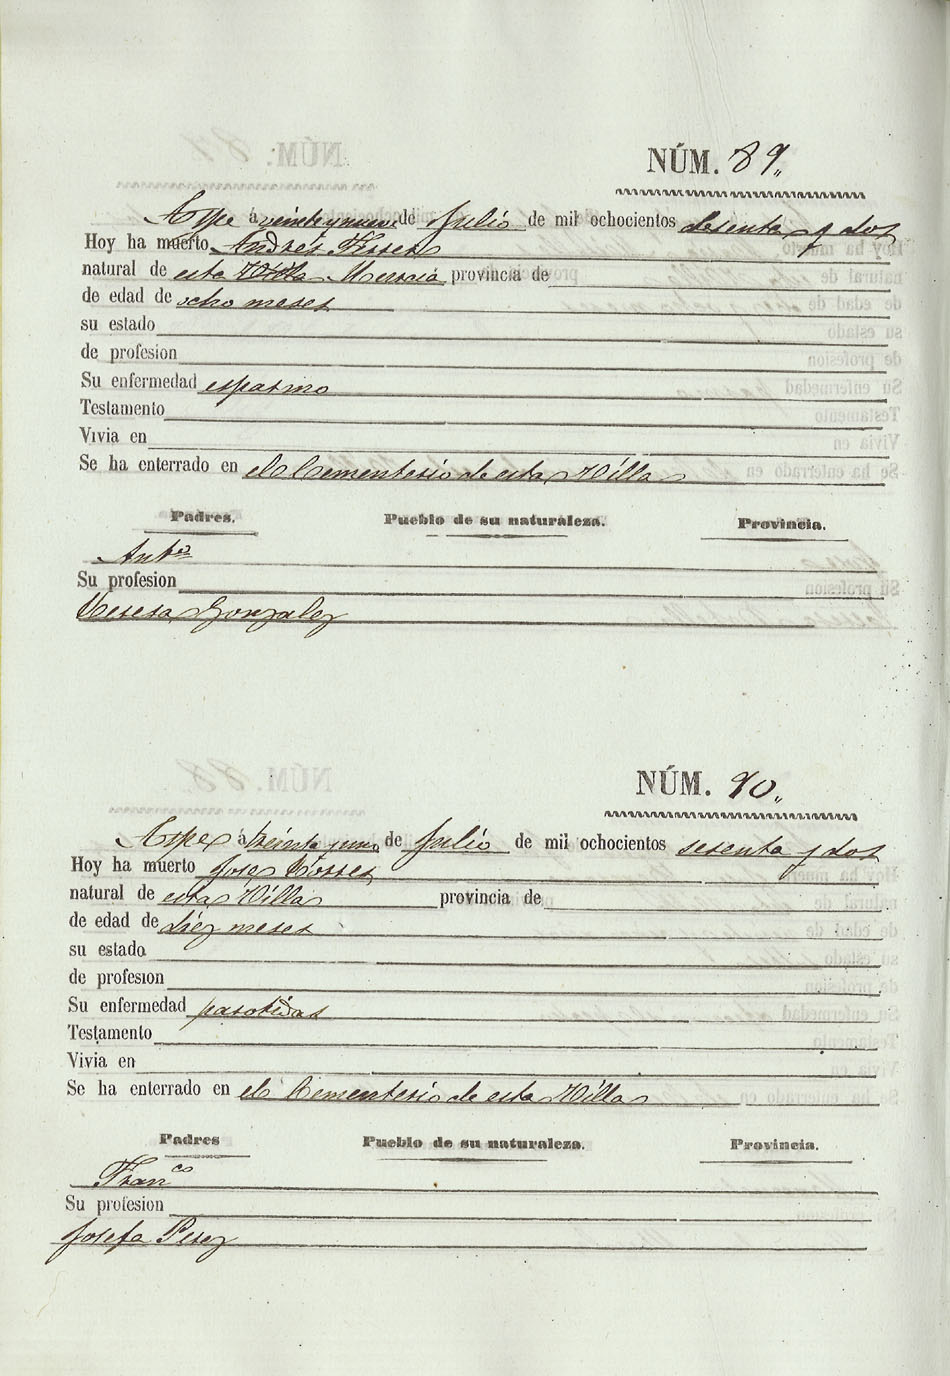 NÚM. 89,,
Aspe á veinte y nueve de Julio de mil ochocientos sesenta y dos
Hoy ha muerto Andrés Ferrer
natural de esta Murcia provincia de
de edad de ocho meses
su estado
de profesion
Su enfermedad espasmo
Testamento
Vivia en
Se ha enterrado en el Cementerio de esta Villa
Padres. Pueblo de su naturaleza. Provincia.
Ant.º
Su profesion
Teresa Gonzalez
NÚM. 90,,
Aspe á treinta y uno de Julio de mil ochocientos sesenta y dos
Hoy ha muerto Jose Torres
natural de esta Villa provincia de
de edad de diez meses
su estado
de profesion
Su enfermedad parotidas
Testamento
Vivia en
Se ha enterrado en el Cementerio de esta Villa
Padres Pueblo de su naturaleza. Provincia.
Fran.co
Su profesion
Josefa Perez